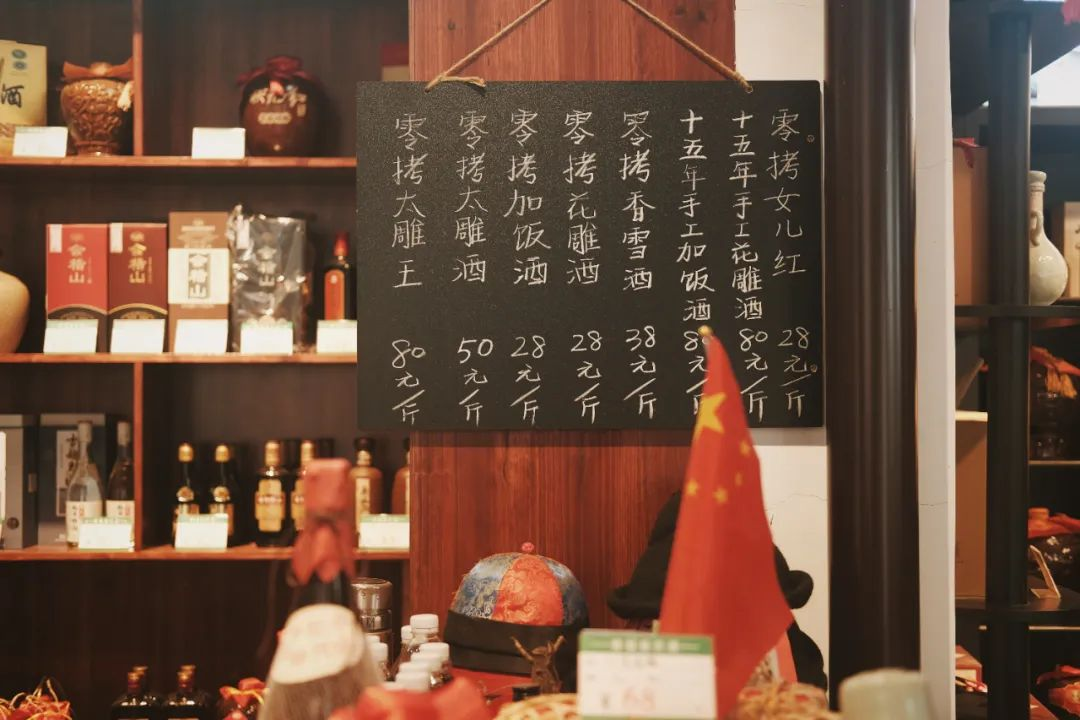 零拷女儿红 28元/斤
十五年手工花雕酒 80元/斤
十五年手工加饭酒 元/斤
零拷香雪酒 38元/斤
零拷花雕酒 28元/斤
零拷加饭酒 28元/斤
零拷太雕酒 50元/斤
零拷太雕王 80元/斤
酒
状元红
会稽山
会稽山
会稽山
会稽山
68